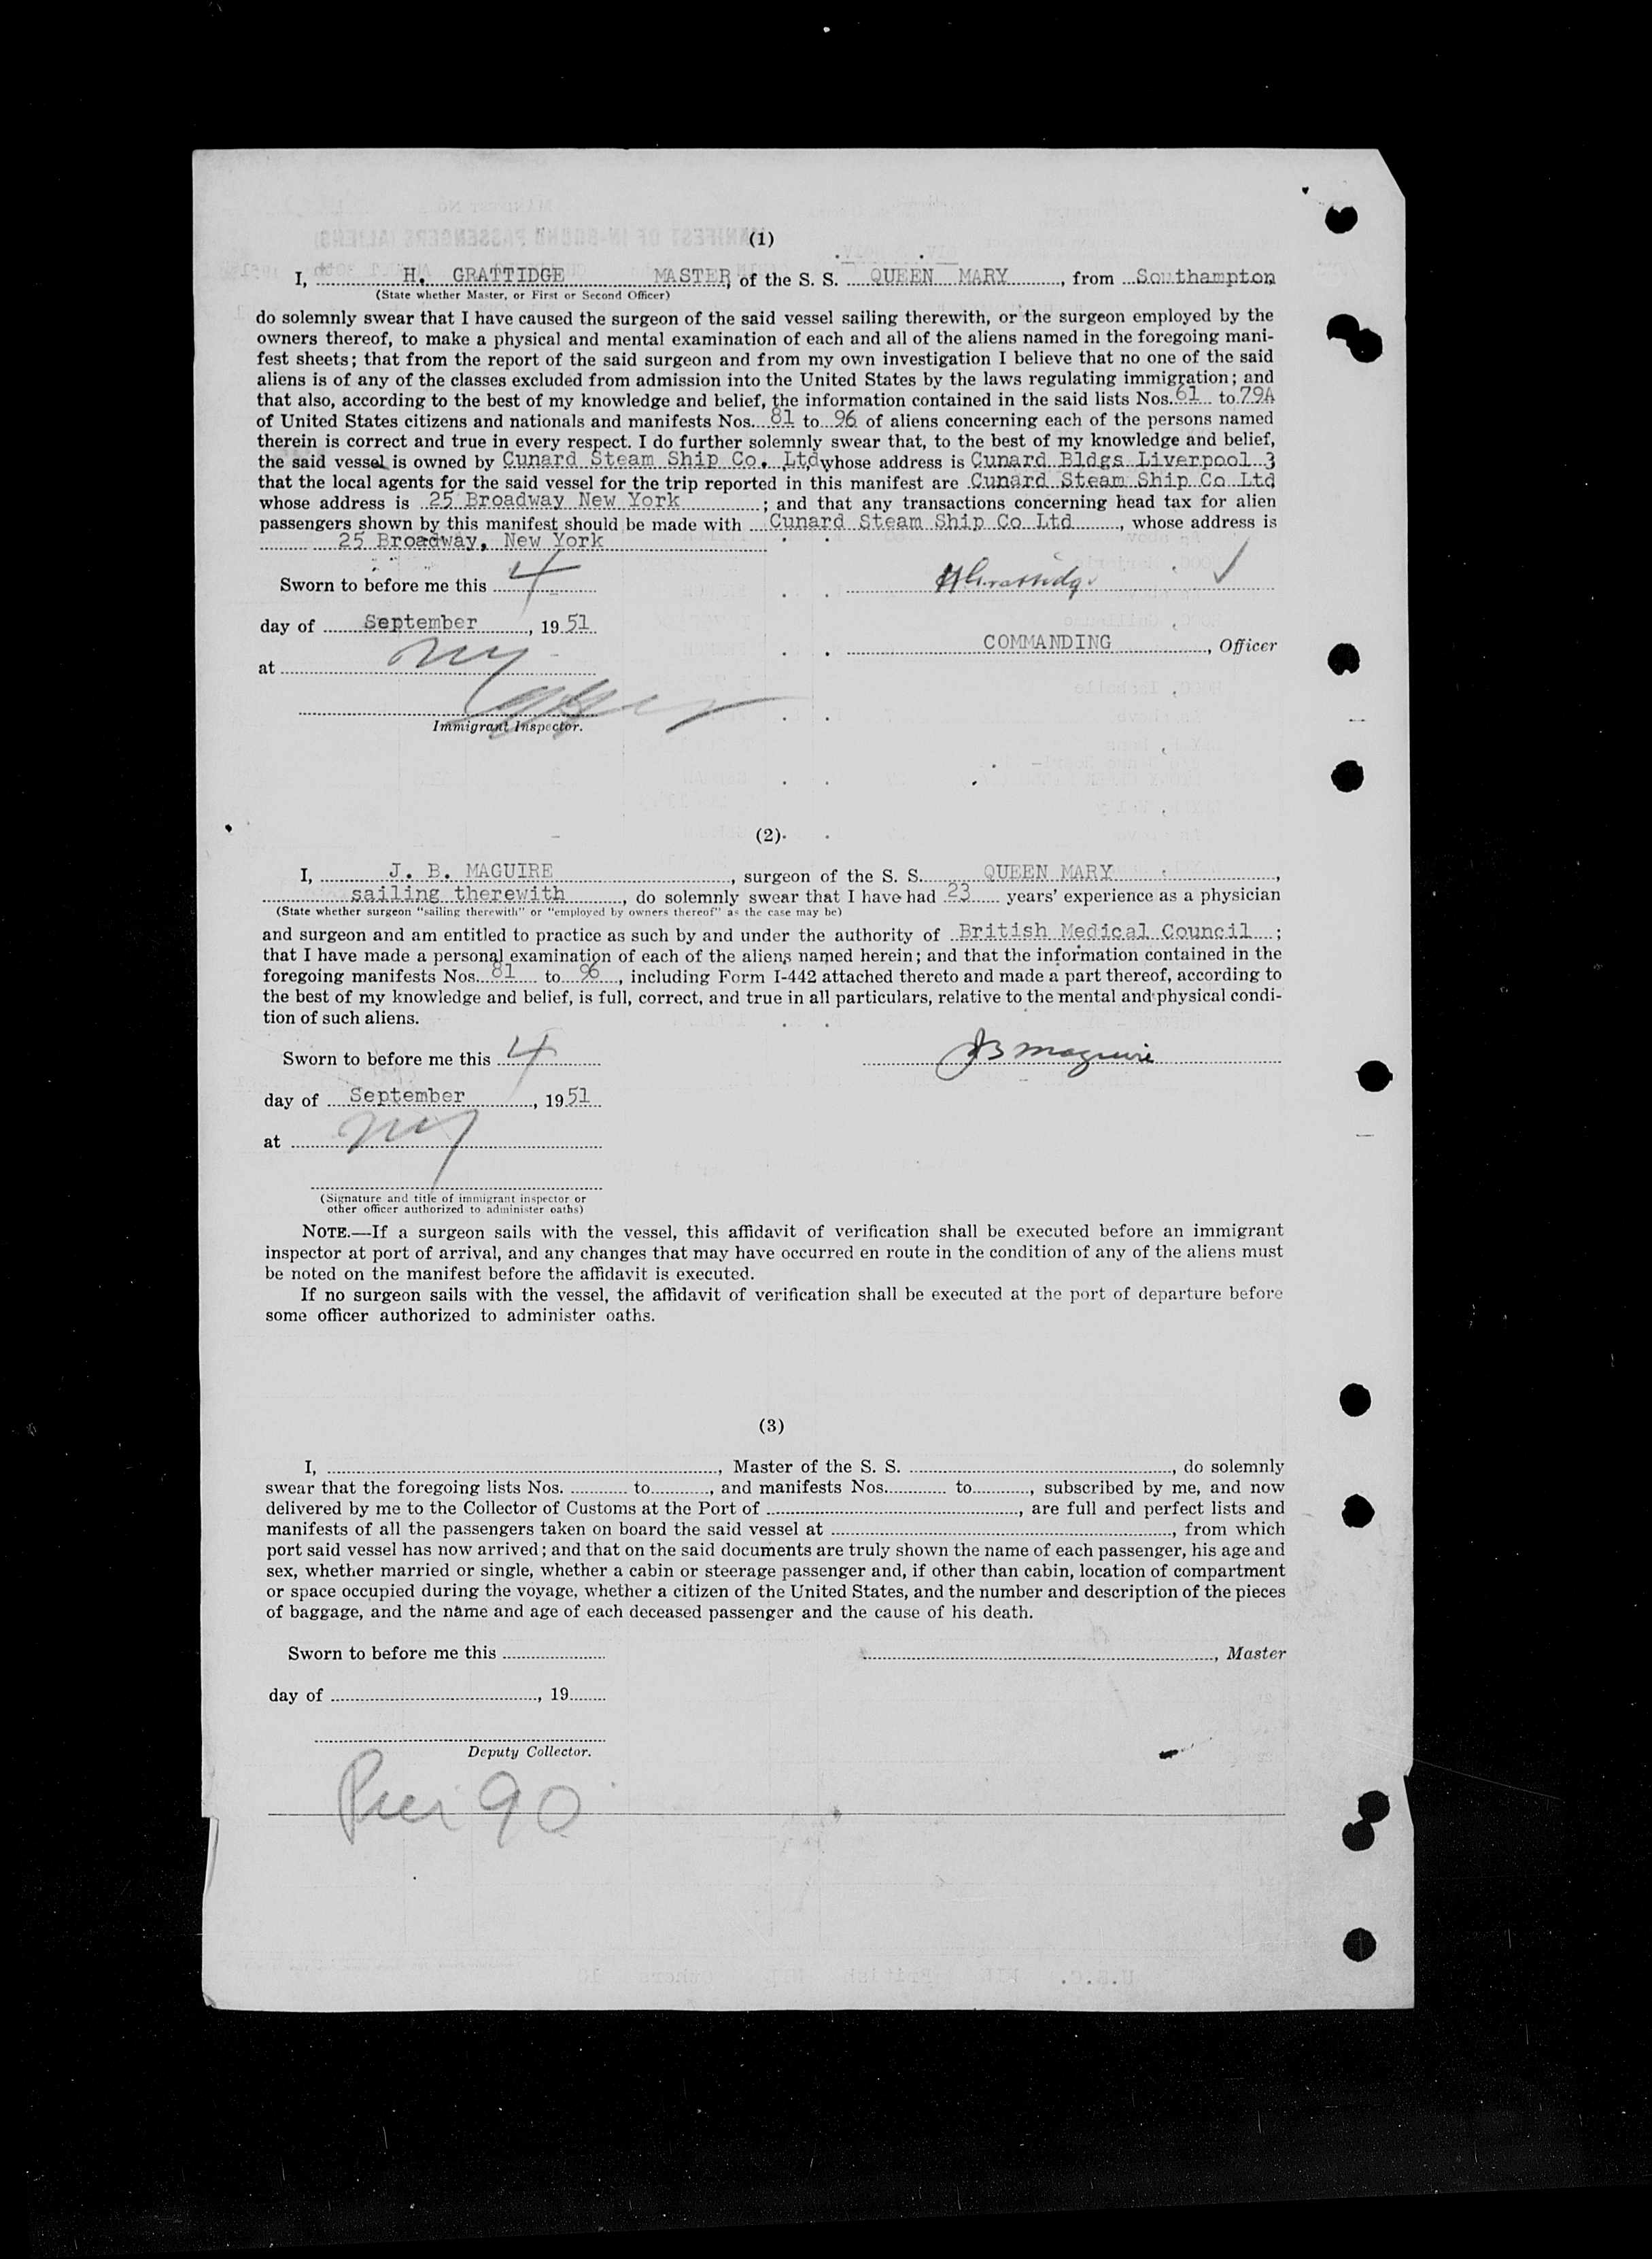 (1)
I, H. GRATTIDGE MASTER, of the S. S. QUEEN MARY, from Southampton
(State whether Master, or First or Second Officer)
do solemnly swear that I have caused the surgeon of the said vessel sailing therewith, or the surgeon employed by the
owners thereof, to make a physical and mental examination of each and all of the aliens named in the foregoing mani-
fest sheets; that from the report of the said surgeon and from my own investigation I believe that no one of the said
aliens is of any of the classes excluded from admission into the United States by the laws regulating immigration; and
that also, according to the best of my knowledge and belief, the information contained in the said lists Nos. 61 to 79A
of United States citizens and nationals and manifests Nos. 81 to 96 of aliens concerning each of the persons named
therein is correct and true in every respect. I do further solemnly swear that, to the best of my knowledge and belief,
the said vessel is owned by Cunard Steam Ship Co. Ltd, whose address is Cunard Bldgs Liverpool 3
that the local agents for the said vessel for the trip reported in this manifest are Cunard Steam Ship Co Ltd
whose address is 25 Broadway New York; and that any transactions concerning head tax for alien
passengers shown by this manifest should be made with Cunard Steam Ship Co Ltd, whose address is
25 Broadway, New York
Sworn to before me this 4 HGrattidge
day of September, 1951
COMMANDING, Officer
at NY
Immigrant Inspector.
(2)
I, J. B. MAGUIRE, surgeon of the S. S. QUEEN MARY,
sailing therewith, do solemnly swear that I have had 23 years' experience as a physician
(State whether surgeon "sailing therewith" or "employed by owners thereof" as the case may be)
and surgeon and am entitled to practice as such by and under the authority of British Medical Council;
that I have made a personal examination of each of the aliens named herein; and that the information contained in the
foregoing manifests Nos. 81 to 96, including Form I-442 attached thereto and made a part thereof, according to
the best of my knowledge and belief, is full, correct, and true in all particulars, relative to the mental and physical condi-
tion of such aliens.
Sworn to before me this 4 JB Maguire
day of September, 1951
at NY
(Signature and title of immigrant inspector or
other officer authorized to administer oaths)
NOTE.—If a surgeon sails with the vessel, this affidavit of verification shall be executed before an immigrant
inspector at port of arrival, and any changes that may have occurred en route in the condition of any of the aliens must
be noted on the manifest before the affidavit is executed.
If no surgeon sails with the vessel, the affidavit of verification shall be executed at the port of departure before
some officer authorized to administer oaths.
(3)
I, , Master of the S. S. , do solemnly
swear that the foregoing lists Nos. to , and manifests Nos. to , subscribed by me, and now
delivered by me to the Collector of Customs at the Port of , are full and perfect lists and
manifests of all the passengers taken on board the said vessel at , from which
port said vessel has now arrived; and that on the said documents are truly shown the name of each passenger, his age and
sex, whether married or single, whether a cabin or steerage passenger and, if other than cabin, location of compartment
or space occupied during the voyage, whether a citizen of the United States, and the number and description of the pieces
of baggage, and the name and age of each deceased passenger and the cause of his death.
Sworn to before me this , Master
day of , 19
Deputy Collector.
Pier 90